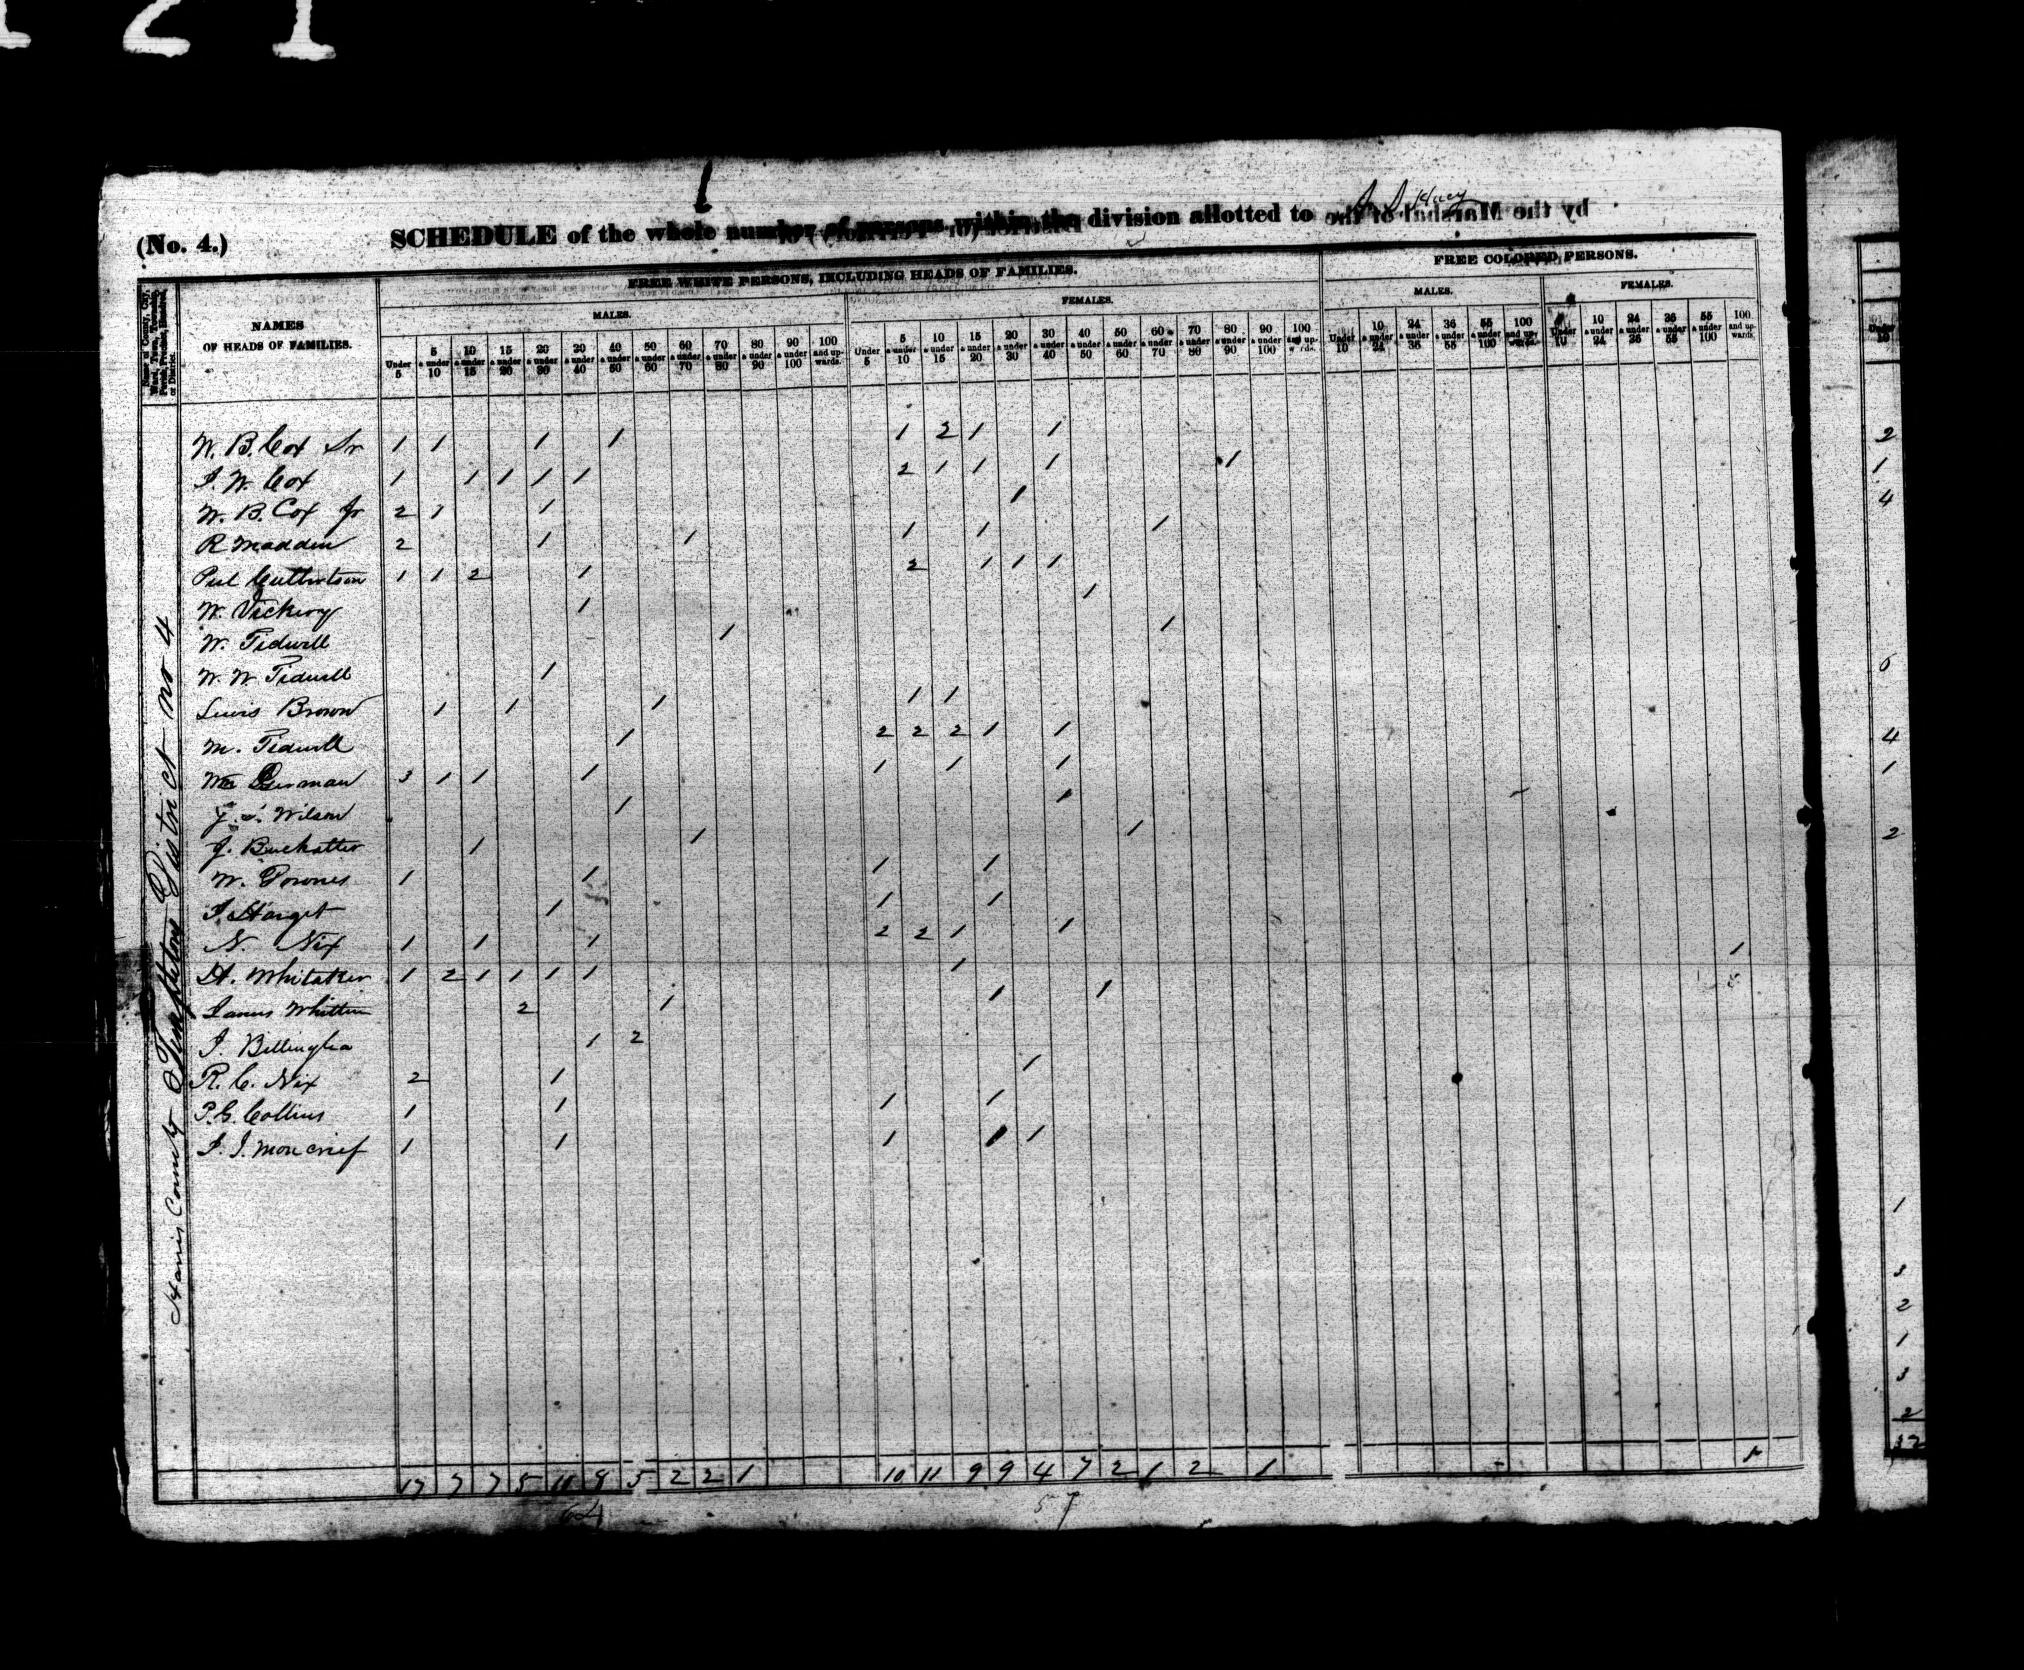 121
(No. 4.)
SCHEDULE of the whole number of persons within the division allotted to
by the Marshal of the
FREE WHITE PERSONS, INCLUDING HEADS OF FAMILIES.
FREE COLORED PERSONS.
NAMES
OF HEADS OF FAMILIES.
MALES.
FEMALES.
MALES.
FEMALES.
Name of County, City, Ward, Town, Township, Parish, Precinct, Hundred, or District.
Under 5
5 & under 10
10 & under 15
15 & under 20
20 & under 30
30 & under 40
40 & under 50
50 & under 60
60 & under 70
70 & under 80
80 & under 90
90 & under 100
100 and upwards.
Under 5
5 & under 10
10 & under 15
15 & under 20
20 & under 30
30 & under 40
40 & under 50
50 & under 60
60 & under 70
70 & under 80
80 & under 90
90 & under 100
100 and upwards.
Under 10
10 & under 24
24 & under 36
36 & under 55
55 & under 100
100 and upwards.
Under 10
10 & under 24
24 & under 36
36 & under 55
55 & under 100
100 and upwards.
Under 10
Harris County Templetons District no 4
W. B. Cox Sr 1 1 1 1 1 2 1 1 2
J. W. Cox 1 1 1 1 1 2 1 1 1 1 1
W. B. Cox Jr 2 1 1 1 4
R Madden 2 1 1 1 1 1
Cuthbertson 1 1 2 1 2 1 1 1
W. Vickery 1 1
W. Tidwell 1 1
W. W. Tidwell 1 6
Lewis Brown 1 1 1 1 1
M. Tidwell 1 2 2 2 1 1 4
3 1 1 1 1 1 1 1
Wilson 1 1
J. 1 1 1 2
W. 1 1 1 1
1 1 1
N. Nix 1 1 1 2 2 1 1 1
H. Whitaker 1 2 1 1 1 1 1
James Whitten 2 1 1 1
J. 1 2
R. C. Nix 2 1 1
P. G. Collins 1 1 1 1
J. J. Moncrief 1 1 1 1 1
1
3
2
1
3
2
17 7 7 5 11 8 5 2 2 1 10 11 9 9 4 7 2 1 2 1 1 32
64 57